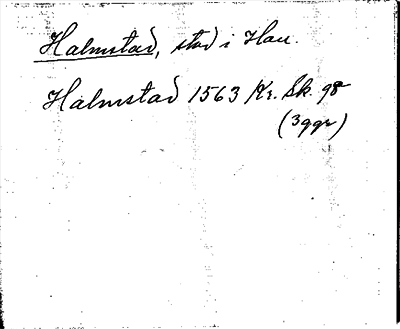 Halmstad, stad i Hall.
Halmstad 1563 Kr. Sk. 98
(3ggr)